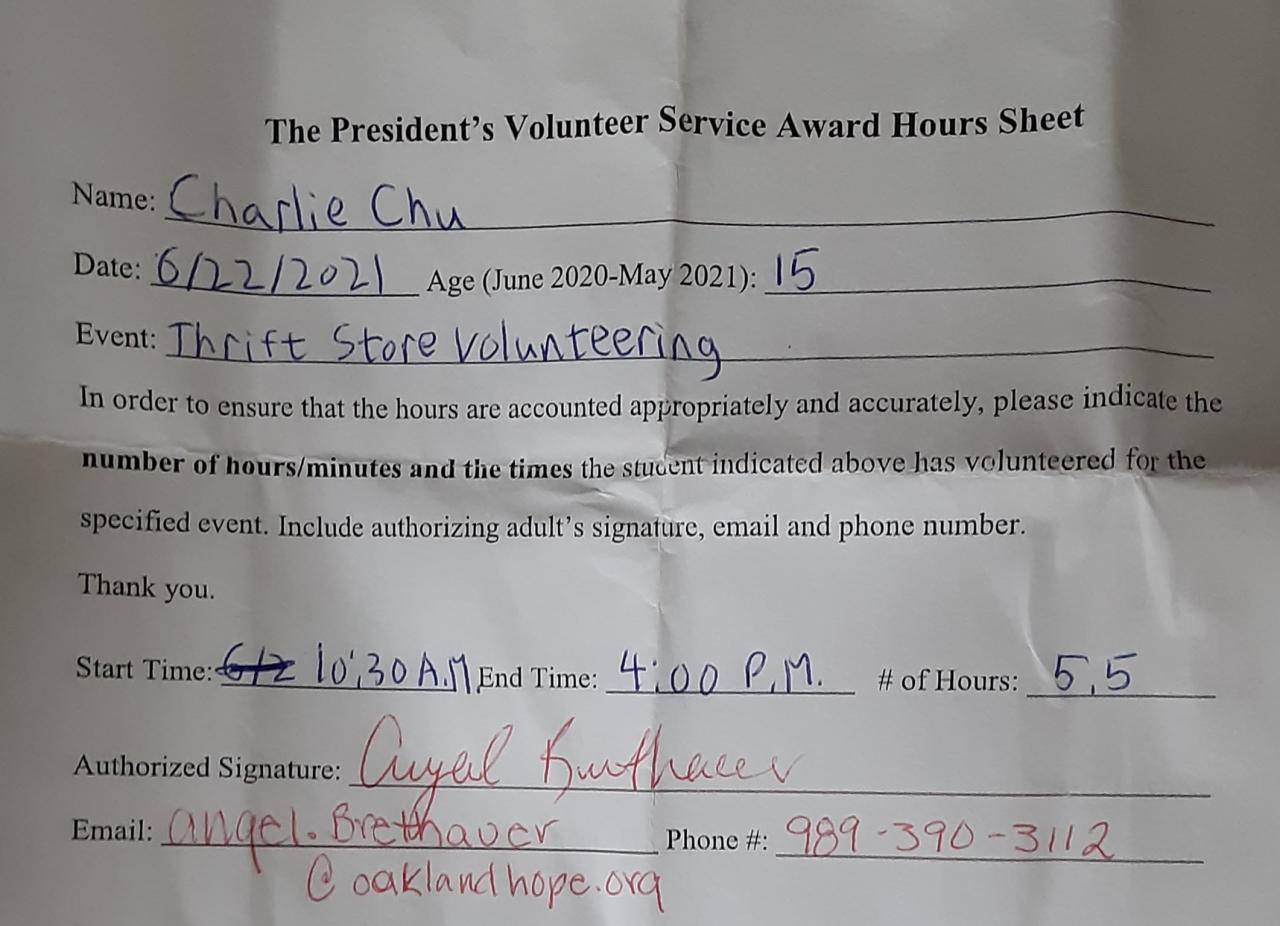 The President's Volunteer Service Award Hours Sheet
Name: Charlie Chu
Date: 6/22/2021 Age (June 2020-May 2021): 15
Event: Thrift Store Volunteering
In order to ensure that the hours are accounted appropriately and accurately, please indicate the
number of hours/minutes and the times the student indicated above has volunteered for the
specified event. Include authorizing adult's signature, email and phone number.
Thank you.
Start Time: 10:30 A.M End Time: 4:00 P.M. # of Hours: 5.5
Authorized Signature: Angel Bretthauer
Email: angel.Bretthauer Phone #: 989-390-3112
@oaklandhope.org